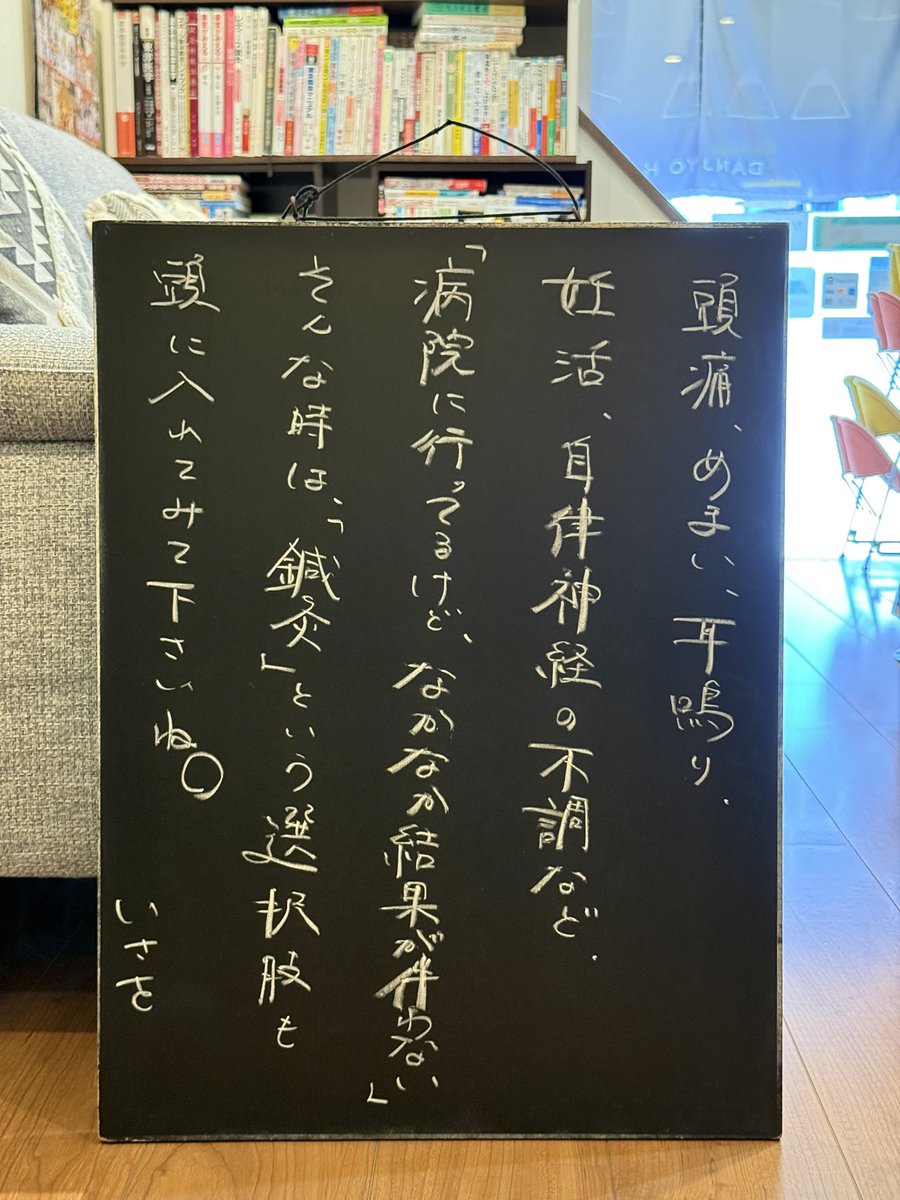 頭痛、めまい、耳鳴り、
妊活、自律神経の不調など、
「病院に行ってるけど、なかなか結果が伴わない」
そんな時は、「鍼灸」という選択肢も
頭に入れてみて下さいね。
いさを
DANJYO